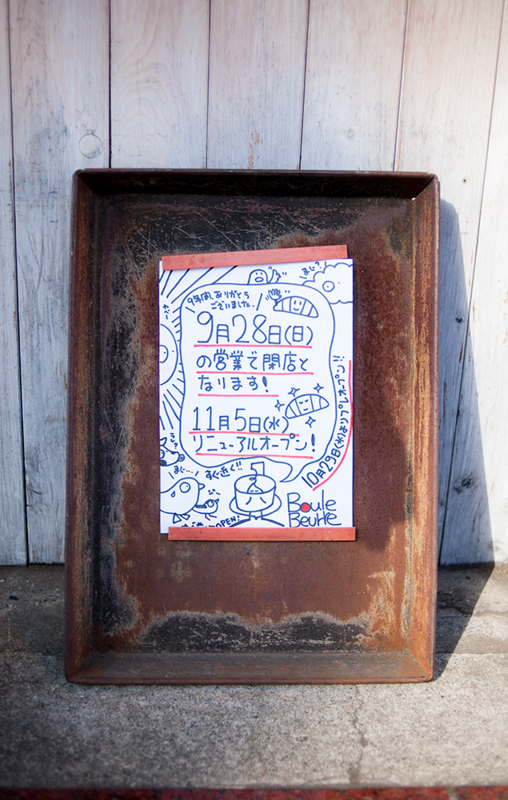 9年間、ありがとう
ございました。
まじ?
9月28日(日)
の営業で閉店と
なります!
11月5日(水)
リニューアルオープン!
10月29日(水)よりプレオープン!!
すぐ近く!!
OPEN!
Boule
Beurre